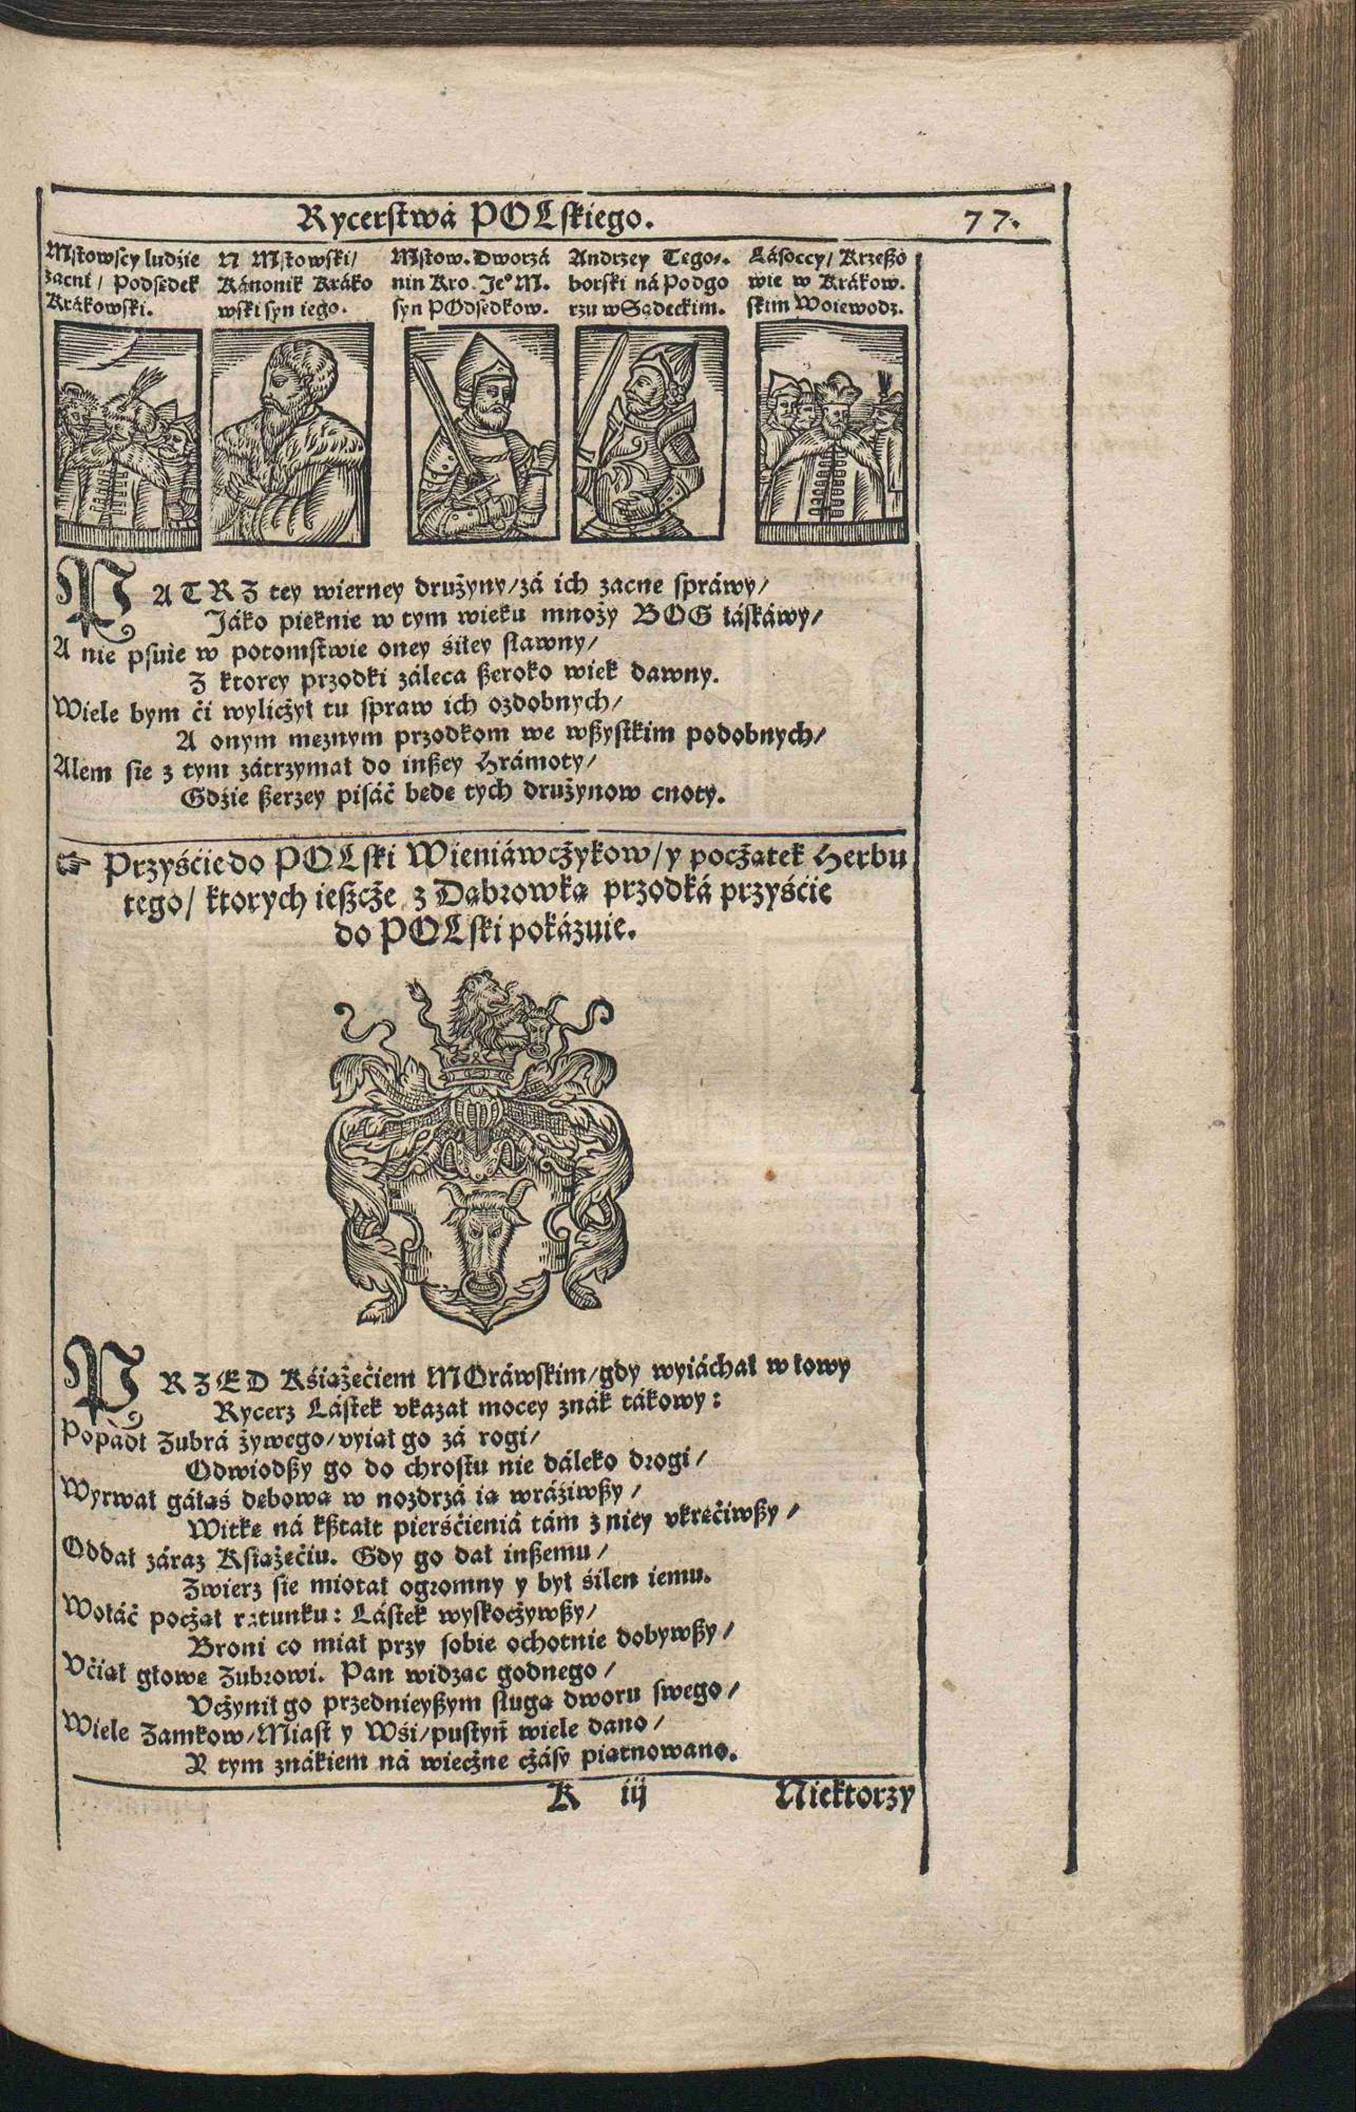 Rycerstwá POLskiego. 77.
Mstowscy ludźie
zacni / Podsędek
Krákowski.
N Mstowski/
Kánonik Kráko
wski syn iego.
Mstow. Dworzá
nin Kro. Je° M.
syn POdsędkow.
Andrzey Tego⸗.
borski ná Podgo
rzu w Sądeckim.
Lásoccy/ Krzeßo
wie w Krákow.
skim Woiewodz.
PATRZ tey wierney drużyny/zá ich zacne spráwy/
Jáko pięknie w tym wieku mnoży BOG łáskáwy/
A nie psuie w potomstwie oney śiłey sławny/
Z ktorey przodki záleca ßeroko wiek dawny.
Wiele bym ći wyliczył tu spraw ich ozdobnych/
A onym mężnym przodkom we wßystkim podobnych/
Alem się z tym zátrzymał do inßey Hrámoty/
Gdźie ßerzey pisáć będę tych drużynow cnoty.
☞ Przyśćie do POLski Wieniáwczykow/y początek Herbu
tego/ ktorych ießcże z Dąbrowką przodká przyśćie
do POLski pokázuie.
PRZED Kśiążęćiem MOráwskim/gdy wyiáchał w łowy
Rycerz Lástek vkazał mocey znák tákowy:
Popádł Zubrá żywego/vyiął go zá rogi/
Odwiodßy go do chrostu nie dáleko drogi/
Wyrwał gáłąś dębową w nozdrzá ią wráźiwßy/
Witkę ná kßtałt pierśćieniá tám z niey vkręćiwßy/
Oddał záraz Ksiażęćiu. Gdy go dał inßemu/
Zwierz się miotał ogromny y był śilen iemu.
Wołáć począł rátunku: Lástek wyskoczywßy/
Broni co miał przy sobie ochotnie dobywßy/
Vćiął głowę Zubrowi. Pan widząc godnego/
Vczynił go przednieyßym sługą dworu swego/
Wiele Zamkow/Miast y Wśi/pustyń wiele dano/
Y tym znákiem ná wieczne czásy piątnowano.
K iij Niektorzy